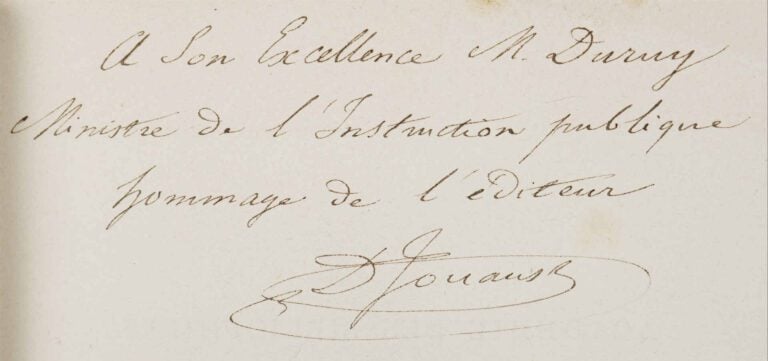 A Son Excellence M. Duruy
Ministre de l'Instruction publique
hommage de l'éditeur
D Jouaust